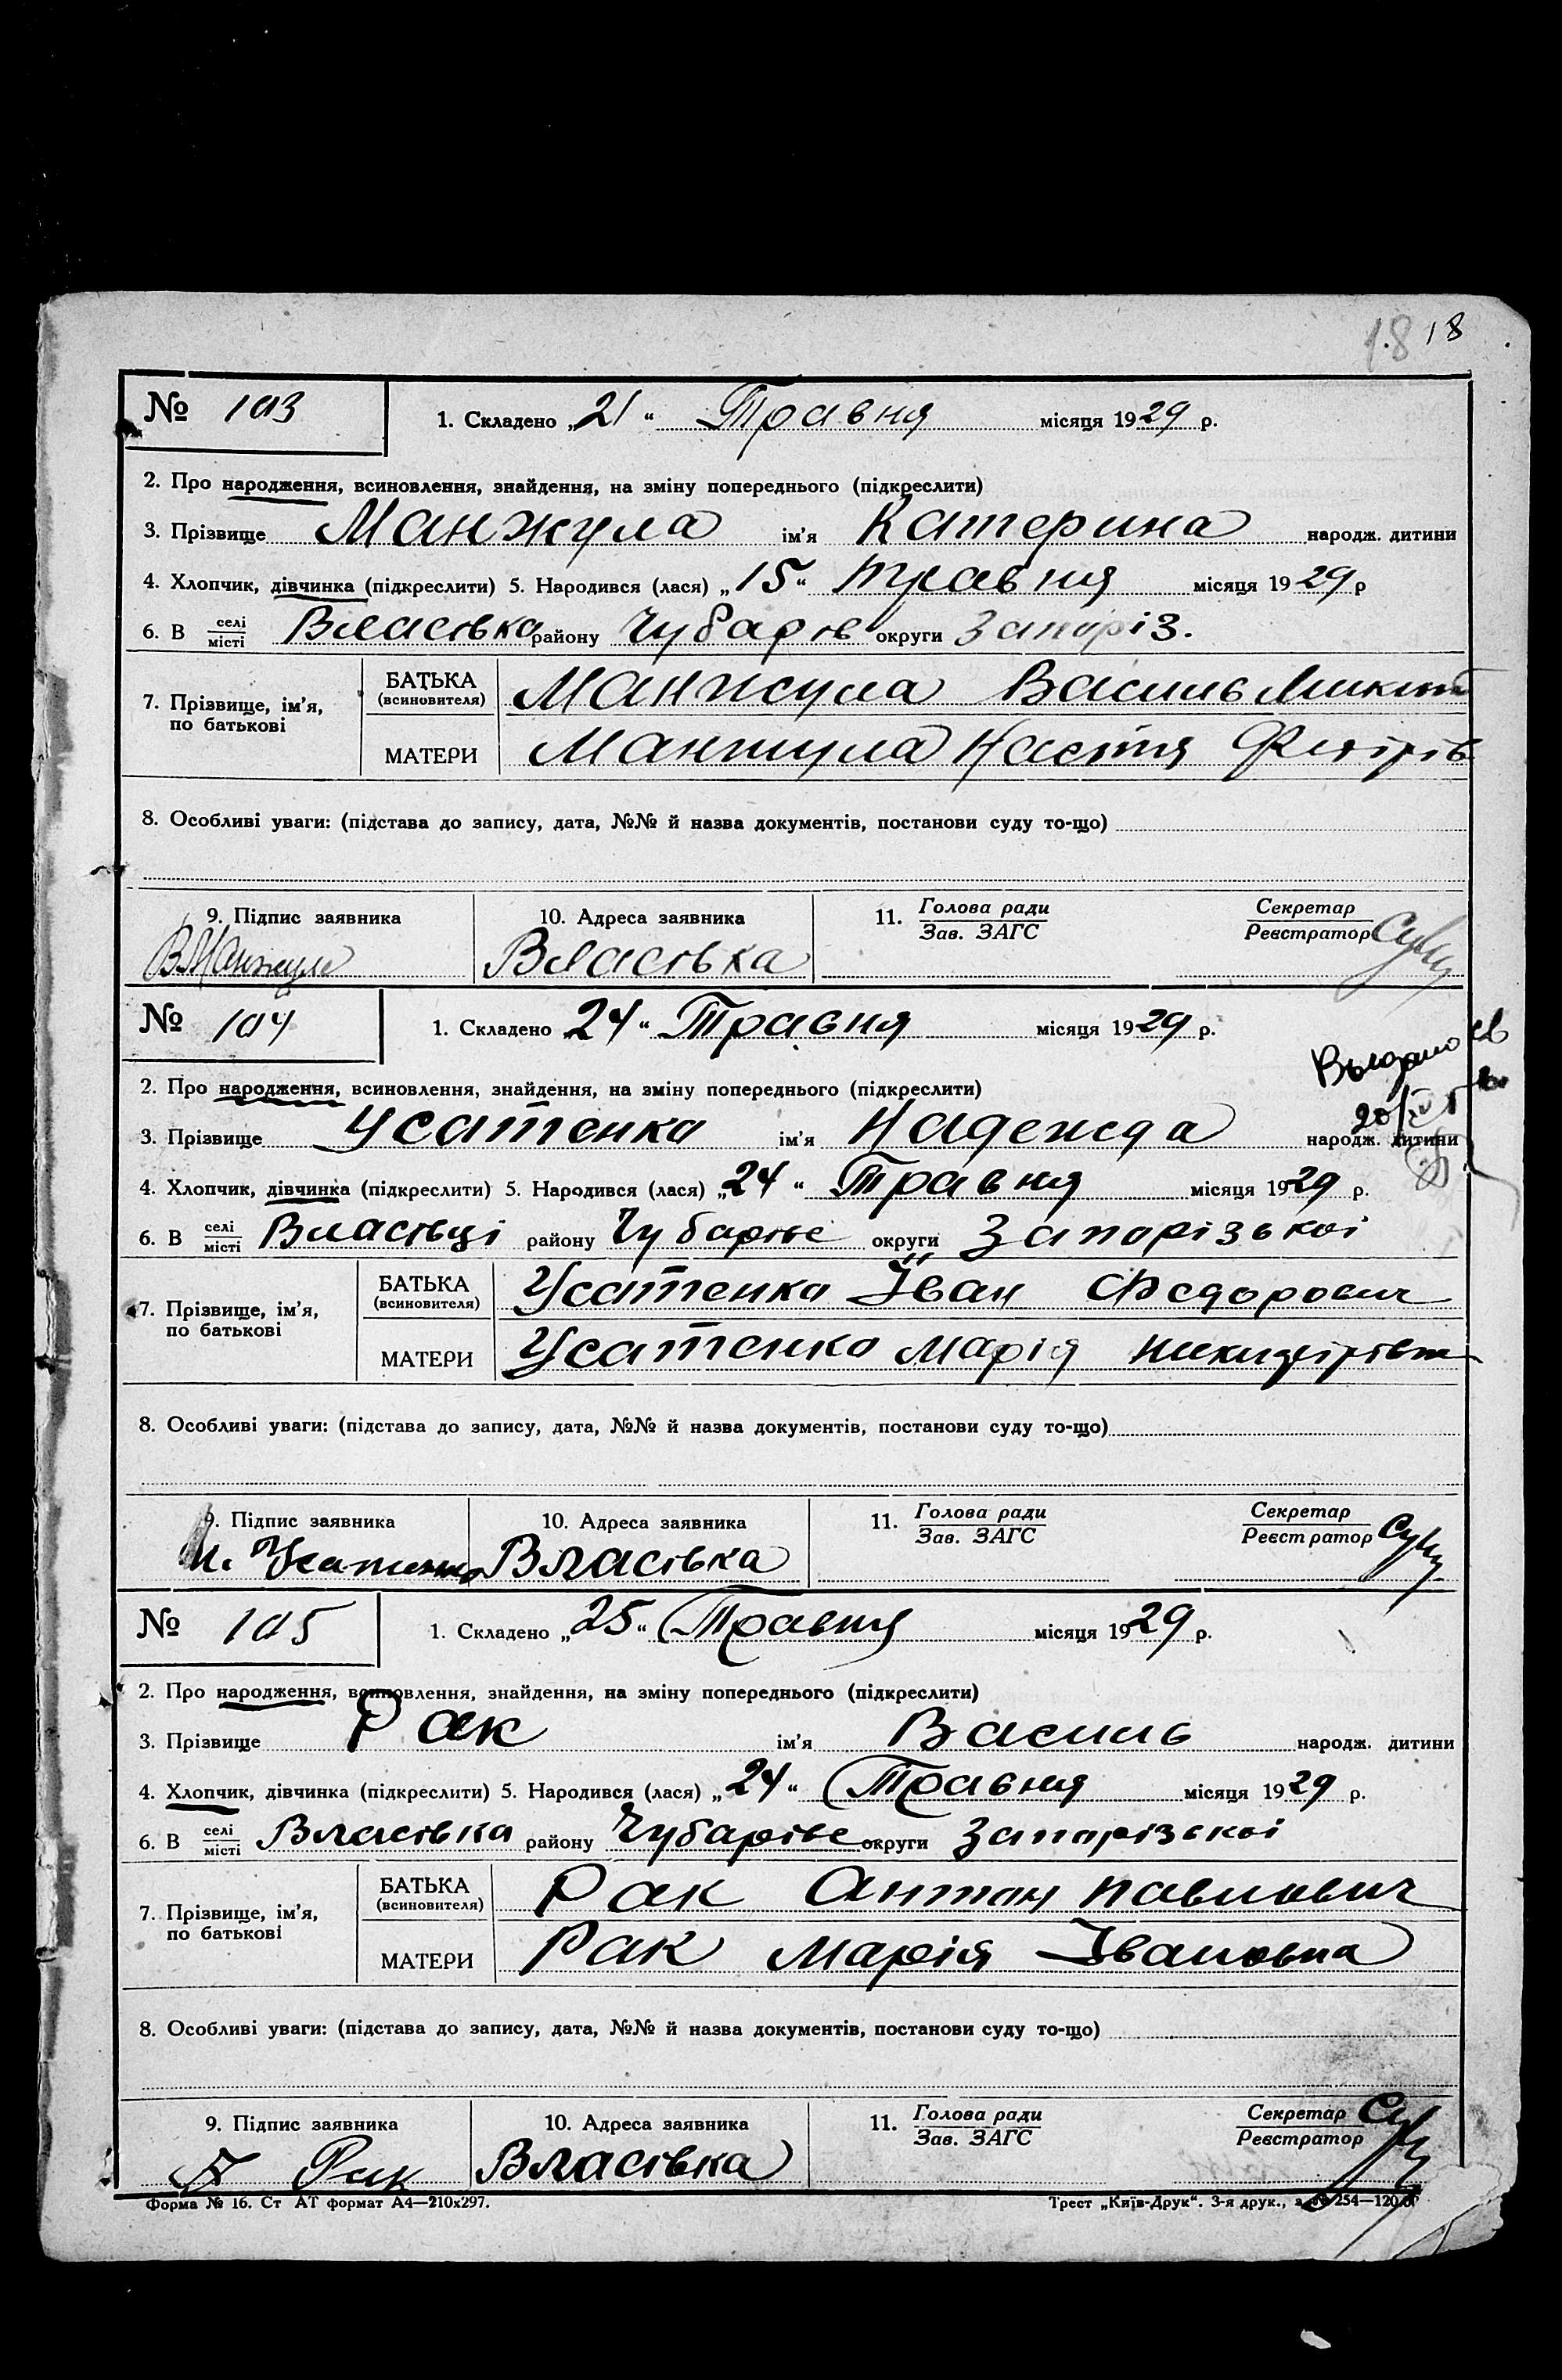 18 18
№ 103 1. Складено „21“ Травня місяця 1929 р.
2. Про народження, всиновлення, знайдення, на зміну попереднього (підкреслити)
3. Прізвище Манжула ім'я Катерина народж. дитини
4. Хлопчик, дівчинка (підкреслити) 5. Народився (лася) „15“ травня місяця 1929 р
6. В селі/місті Власівка району Чубарів округи Запоріз.
7. Прізвище, ім'я, по батькові БАТЬКА (всиновителя) Манжула Василь Микит
МАТЕРИ Манжула Настя
8. Особливі уваги: (підстава до запису, дата, №№ й назва документів, постанови суду то-що)
9. Підпис заявника 10. Адреса заявника 11. Голова ради/Зав. ЗАГС Секретар/Реєстратор
В Манжула Власівка
№ 104 1. Складено 24“ Травня місяця 1929 р.
2. Про народження, всиновлення, знайдення, на зміну попереднього (підкреслити)
3. Прізвище Усатенко ім'я Надежда народж. дитини
4. Хлопчик, дівчинка (підкреслити) 5. Народився (лася) „24“ Травня місяця 1929 р.
6. В селі/місті Власівці району Чубарівс округи Запорізькоі
7. Прізвище, ім'я, по батькові БАТЬКА (всиновителя) Усатенко Іван Федорович
МАТЕРИ Усатенко Марія
8. Особливі уваги: (підстава до запису, дата, №№ й назва документів, постанови суду то-що)
9. Підпис заявника 10. Адреса заявника 11. Голова ради/Зав. ЗАГС Секретар/Реєстратор
Усатенко Власівка
№ 105 1. Складено „25“ Травня місяця 1929 р.
2. Про народження, всиновлення, знайдення, на зміну попереднього (підкреслити)
3. Прізвище Рак ім'я Василь народж. дитини
4. Хлопчик, дівчинка (підкреслити) 5. Народився (лася) „24“ Травня місяця 1929 р.
6. В селі/місті Власівка району Чубарівс округи Запорізькоі
7. Прізвище, ім'я, по батькові БАТЬКА (всиновителя) Рак Антон Павлович
МАТЕРИ Рак Марія Івановна
8. Особливі уваги: (підстава до запису, дата, №№ й назва документів, постанови суду то-що)
9. Підпис заявника 10. Адреса заявника 11. Голова ради/Зав. ЗАГС Секретар/Реєстратор
А Рак Власівка
Форма № 16. Ст АТ формат А4—210х297. Трест „Київ-Друк“. 3-я друк.,